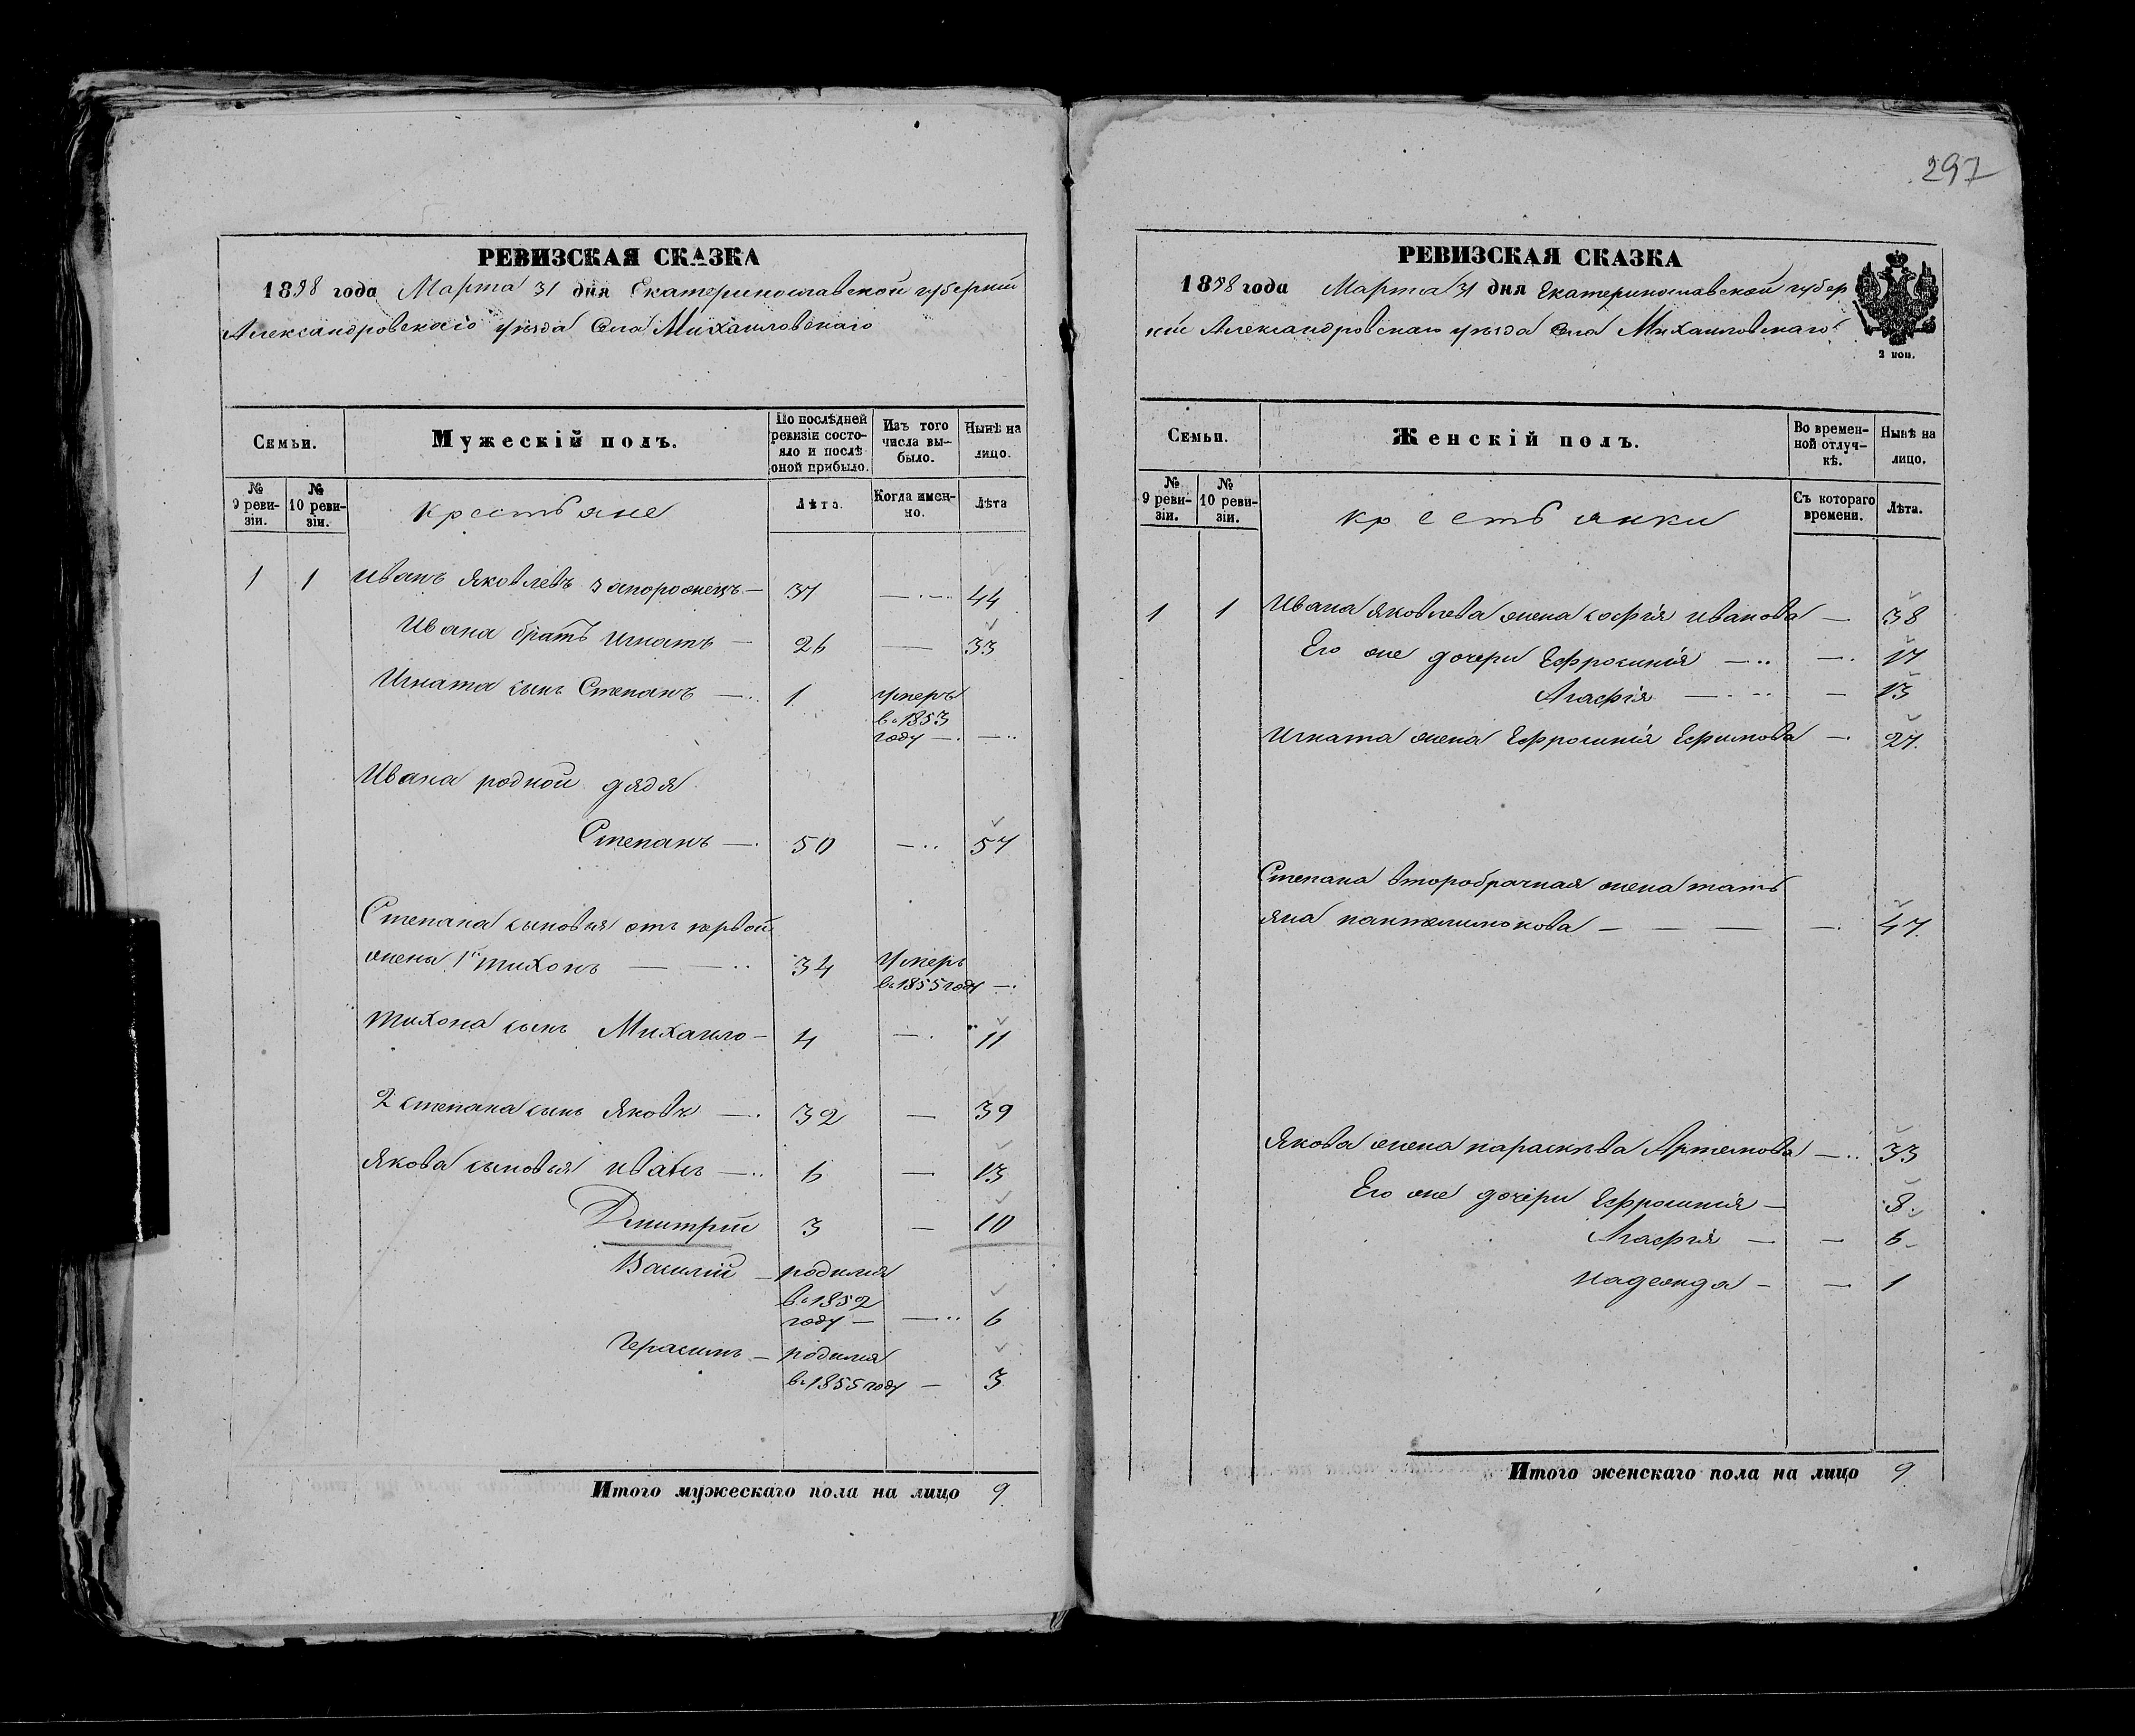 297
РЕВИЗСКАЯ СКАЗКА
1858 года Марта 31 дня Екатеринославской губерніи
Александровскаго уѣзда Села Михаиловскаго
Семьи.
Мужескій полъ.
По послѣдней ревизіи состояло и послѣ оной прибыло.
Изъ того числа выбыло.
Нынѣ на лицо.
№ 9 ревизіи.
№ 10 ревизіи.
крестьяне
Лѣта.
Когда именно.
Лѣта
1 1 Иванъ Яковлевъ запорожецъ — 37 — 44
Ивана братъ Игнатъ — 26 — 33
Игната сынъ Степанъ — 1 умеръ
в. 1853
году — —
Ивана родной дядя
Степанъ — 50 — 57
Степана сыновья отъ первой
жены 1й тихонъ — — 34 умеръ
в. 1855 году —
тихона сынъ Михаило — 4 — 11
2 степана сынъ Яковъ — 32 — 39
Якова сыновья иванъ — 6 — 13
Дмитрій 3 — 10
Василій — родился
в. 1852
году — — 6
Герасимъ — родился
в. 1855 году — 3
Итого мужескаго пола на лицо 9
РЕВИЗСКАЯ СКАЗКА
1858 года Марта 31 дня Екатеринославской губер
ніи Александровскаго уѣзда села Михаиловскаго
2 коп.
Семьи.
Женскій полъ.
Во временной отлучкѣ.
Нынѣ на лицо.
№ 9 ревизіи.
№ 10 ревизіи.
крестьянки
Съ котораго времени.
Лѣта.
1 1 Ивана яковлева жена софія иванова — 38
Его же дочери Ефросинія — — 17
Агафія — — 13
Игната жена Ефросинія Ефимова — 27
Степана второбрачная жена тать
яна пантелимонова — — — — 47
Якова жена параскѣва Артемова — 33
Его же дочери Ефросинія — 8
Агафія — — 6
надежда — — 1
Итого женскаго пола на лицо 9